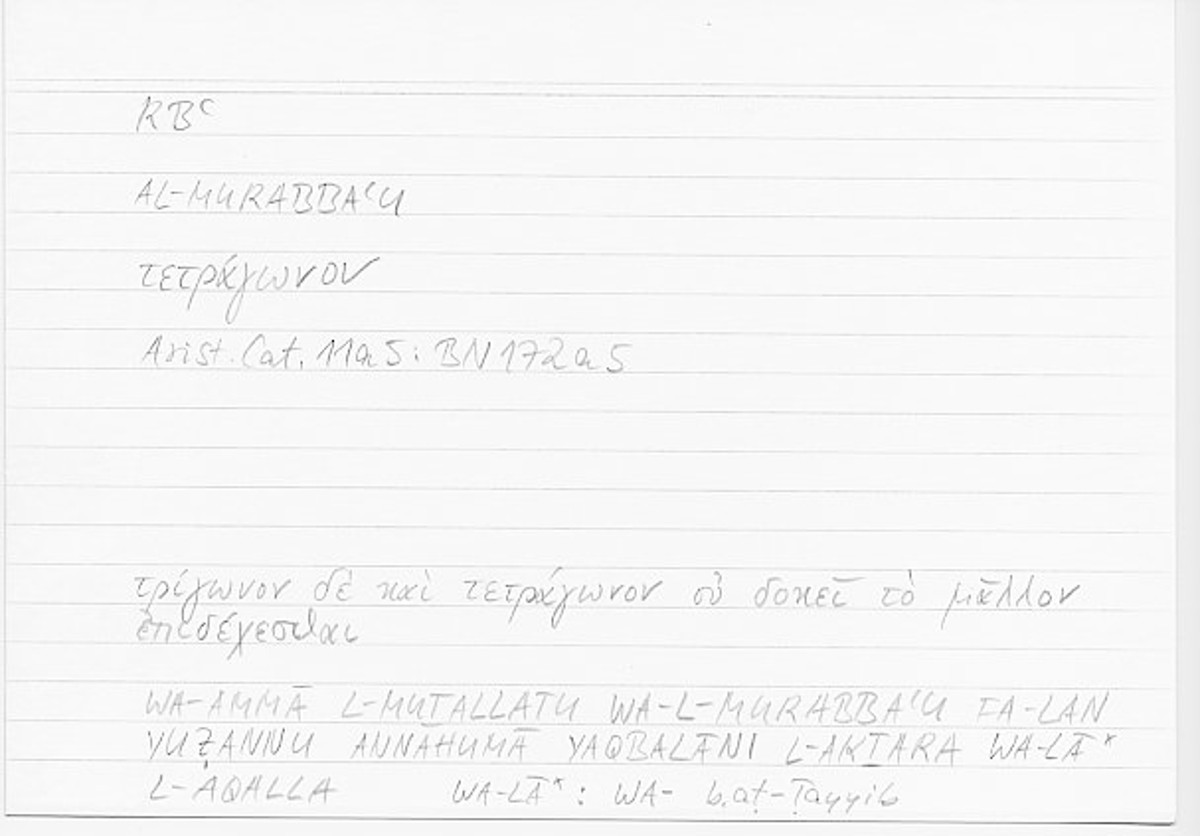 RBʿ
AL-MURABBAʿU
τετράγωνον
Arist. Cat. 11a5: BN 172a5
τρίγωνον δὲ καὶ τετράγωνον οὐ δοκεῖ τὸ μᾶλλον
ἐπιδέχεσθαι
WA-AMMĀ L-MUṮALLAṮU WA-L-MURABBAʿU FA-LAN
YUẒANNU ANNAHUMĀ YAQBALĀNI L-AKṮARA WA-LĀ*
L-AQALLA WA-LĀ*: WA- b.aṭ-Ṭayyib